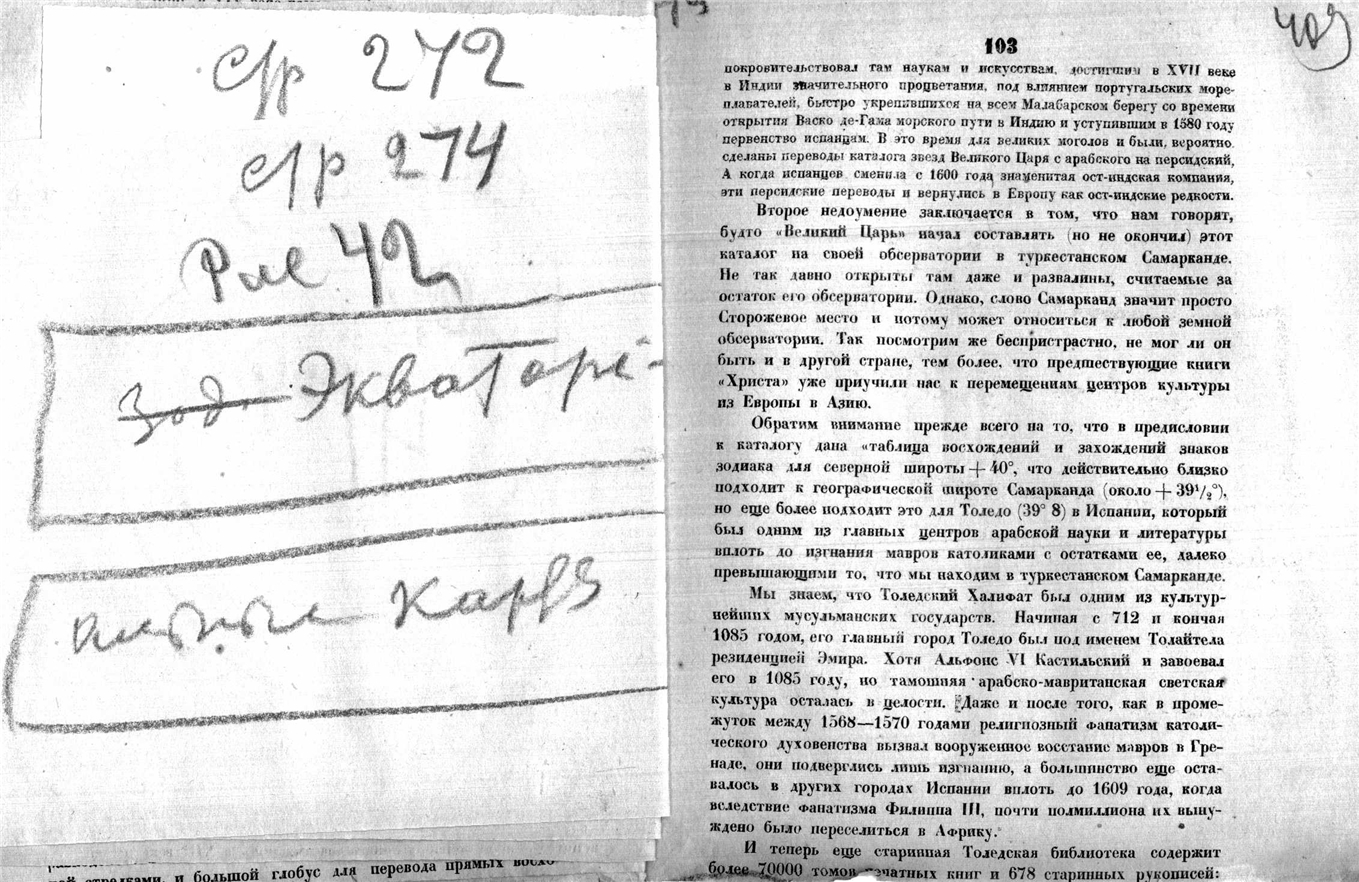 стр 272
стр 274
Рис 42
зод. Экваторе-
карта
стрелками, и большой глобус для перевода прямых восхо-
409
103
покровительствовал там наукам и искусствам, достигшим в XVII веке
в Индии значительного процветания, под влиянием португальских море-
плавателей, быстро укрепившихся на всем Малабарском берегу со времени
открытия Васко де-Гама морского пути в Индию и уступившим в 1580 году
первенство испанцам. В это время для великих моголов и были, вероятно
сделаны переводы каталога звезд Великого Царя с арабского на персидский,
А когда испанцев сменила с 1600 года знаменитая ост-индская компания,
эти персидские переводы и вернулись в Европу как ост-индские редкости.
Второе недоумение заключается в том, что нам говорят,
будто «Великий Царь» начал составлять (но не окончил) этот
каталог на своей обсерватории в туркестанском Самарканде.
Не так давно открыты там даже и развалины, считаемые за
остаток его обсерватории. Однако, слово Самарканд значит просто
Сторожевое место и потому может относиться к любой земной
обсерватории. Так посмотрим же беспристрастно, не мог ли он
быть и в другой стране, тем более, что предшествующие книги
«Христа» уже приучили нас к перемещениям центров культуры
из Европы в Азию.
Обратим внимание прежде всего на то, что в предисловии
к каталогу дана «таблица восхождений и захождений знаков
зодиака для северной широты + 40°, что действительно близко
подходит к географической широте Самарканда (около + 39¹/₂°),
но еще более подходит это для Толедо (39° 8) в Испании, который
был одним из главных центров арабской науки и литературы
вплоть до изгнания мавров католиками с остатками ее, далеко
превышающими то, что мы находим в туркестанском Самарканде.
Мы знаем, что Толедский Халифат был одним из культур-
нейших мусульманских государств. Начиная с 712 и кончая
1085 годом, его главный город Толедо был под именем Толайтела
резиденцией Эмира. Хотя Альфонс VI Кастильский и завоевал
его в 1085 году, но тамошняя арабско-мавританская светская
культура осталась в целости. Даже и после того, как в проме-
жуток между 1568—1570 годами религиозный фанатизм католи-
ческого духовенства вызвал вооруженное восстание мавров в Гре-
наде, они подверглись лишь изгнанию, а большинство еще оста-
валось в других городах Испании вплоть до 1609 года, когда
вследствие фанатизма Филиппа III, почти полмиллиона их выну-
ждено было переселиться в Африку.
И теперь еще старинная Толедская библиотека содержит
более 70000 томов печатных книг и 678 старинных рукописей: